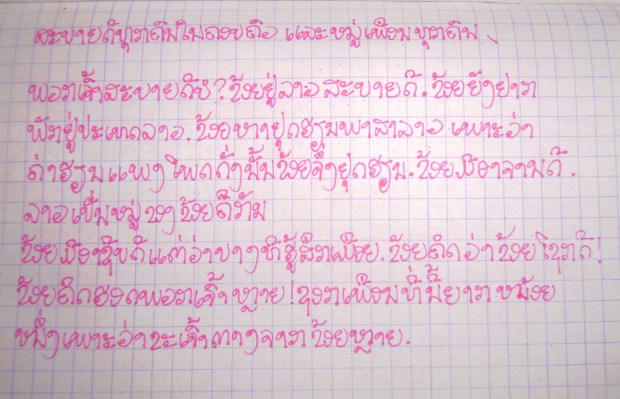 ສະບາຍດີທຸກຄົນໃນຄອບຄົວ ແລະໝູ່ເພື່ອນທຸກຄົນ
ພວກເຈົ້າສະບາຍດີບໍ? ຂ້ອຍຢູ່ລາວສະບາຍດີ. ຂ້ອຍຍັງຢາກ
ພັກຢູ່ປະເທດລາວ. ຂ້ອຍຫາຢຸດຮຽນພາສາລາວ ເພາະວ່າ
ຄ່າຮຽນແພງໂພດ ຄັ່ງນັ້ນຂ້ອຍຈຶ່ງຢຸດຮຽນ. ຂ້ອຍມີອາຈານດີ.
ລາວເປັນໝູ່ຂອງຂ້ອຍ
ຂ້ອຍມີຊີບດີແຕ່ວ່າບາງທີຮູ້ສຶກເມື່ອຍ. ຂ້ອຍຄິດວ່າຂ້ອຍໂຊກດີ!
ຂ້ອຍຄິດຮອດພວກເຈົ້າຫຼາຍ! ຊອກເພື່ອນທີ່ນີ້ຍາກໜ້ອຍ
ໜຶ່ງເພາະວ່າຂະເຈົ້າຕ່າງຈາກຂ້ອຍຫຼາຍ.